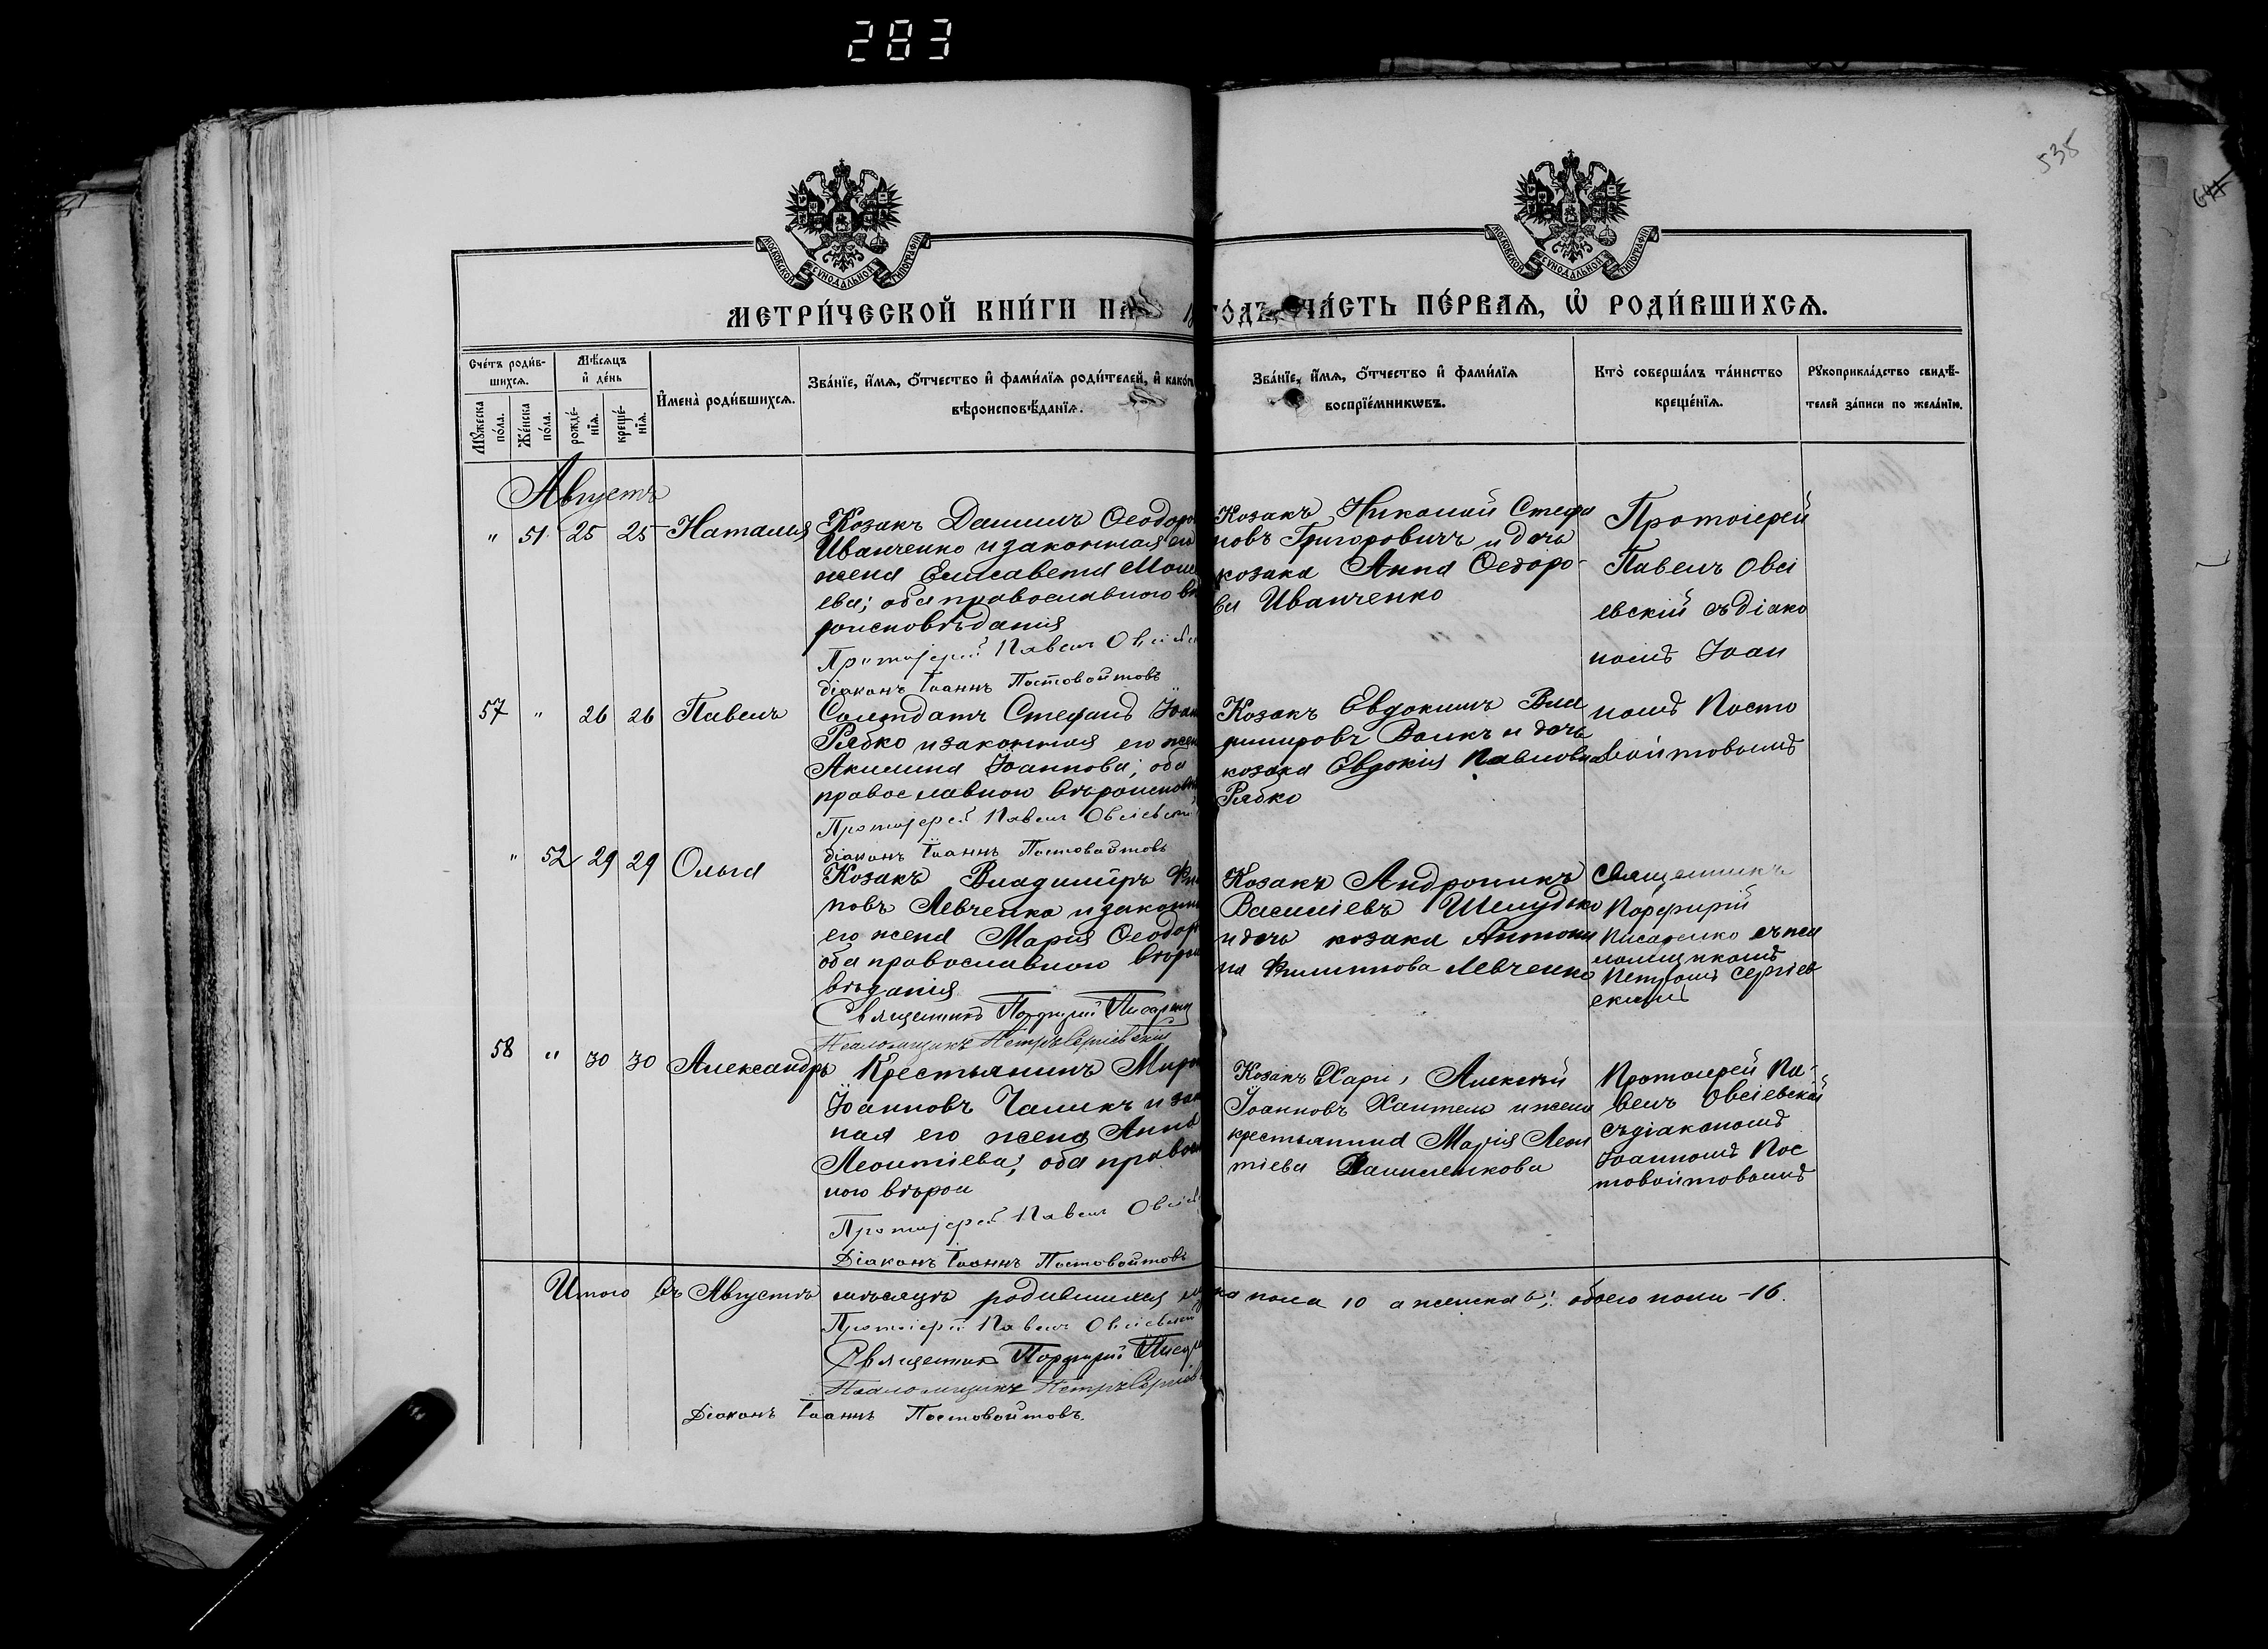 283
538
МОСКОВСКОЙ СѴНОДАЛЬНОЙ ТИПОГРАФІИ
МОСКОВСКОЙ СѴНОДАЛЬНОЙ ТИПОГРАФІИ
МЕТРИ́ЧЕСКОЙ КНИ́ГИ НА ГО́ДЪ, ЧА́СТЬ ПЕ́РВАѦ, Ѡ҆ РОДИ́ВШИХСѦ.
Сче́тъ роди́в-
шихсѧ.
Мꙋ́жеска по́ла.
Же́нска по́ла.
Мѣ́сѧцъ
и҆ де́нь
рожде́-
нїѧ.
креще́-
нїѧ.
И҆мена̀ роди́вшихсѧ.
Зва́нїе, и҆́мѧ, ѻ҆́тчество и҆ фами́лїѧ роди́телей, и҆ како́г
вѣроисповѣ́данїѧ.
Зва́нїе, и҆́мѧ, ѻ҆́тчество и҆ фами́лїѧ
воспрїе́мникѡвъ.
Кто̀ соверша́лъ та́инство
креще́нїѧ.
Рꙋкоприкла́дство свидѣ́-
телей за́писи по жела́нїю.
Августъ
" 51 25 25 Наталия
Козакъ Даниилъ Ѳеодоро
Иванченко и законная его
жена Елисавета Мои
ева; оба православного вѣ
роисповѣдания
Протоіерей Павелъ Овсіевск
діаконъ Іоаннъ Постовойтовъ
Козакъ Николай Стефа
новъ Григоровичъ и дочь
козака Анна Ѳеодоро-
ва Иванченко
Протоіерей
Павелъ Овсі
евскій съ діако
номъ Іоан
номъ Посто
войтовымъ
57 " 26 26 Павелъ
Солдатъ Стефанъ Іоан
Рябко и законная его жен
Акилина Іоаннова; оба
православного вѣроисповѣ
Протоіерей Павелъ Овсіевскій
діаконъ Іоаннъ Постовойтовъ
Козакъ Евдокимъ Вла
димировъ Волкъ и дочь
козака Евдокия Павловна
Рябко
" 52 29 29 Ольга
Козакъ Владимиръ Фи
повъ Левченко и законн
его жена Мария Ѳеодор
оба православного вѣрои
вѣдания
Священникъ Порфирій Писарен
Псаломщикъ Петръ Сергіевскій
Козакъ Андроникъ
Василіевъ Шелудько
и дочь козака Антони
на Филиппова Левченко
Священникъ
Порфирій
Писаренко съ пса
ломщикомъ
Петромъ Сергіев
скимъ
58 " 30 30 Александръ
Крестьянинъ Миро
Іоанновъ Чаликъ и зак
ная его жена Анна
Леонтіева; оба правос
ного вѣрои
Протоіерей Павелъ Овсіев
Діаконъ Іоаннъ Постовойтовъ
Козакъ Алексѣй
Іоанновъ и жена
крестьянина Марія Леон
тіева Даниленкова
Протоіерей Па-
велъ Овсіевскій
съ діакономъ
Іоанномъ Пос
товойтовымъ
Итого въ Августѣ мѣсяцѣ родившихся му ка пола 10 а женска 6; обоего пола - 16.
Протоіерей Павелъ Овсіевскій
Священникъ Порфирій Писаре
Псаломщикъ Петръ Сергіев
Діаконъ Іоаннъ Постовойтовъ.